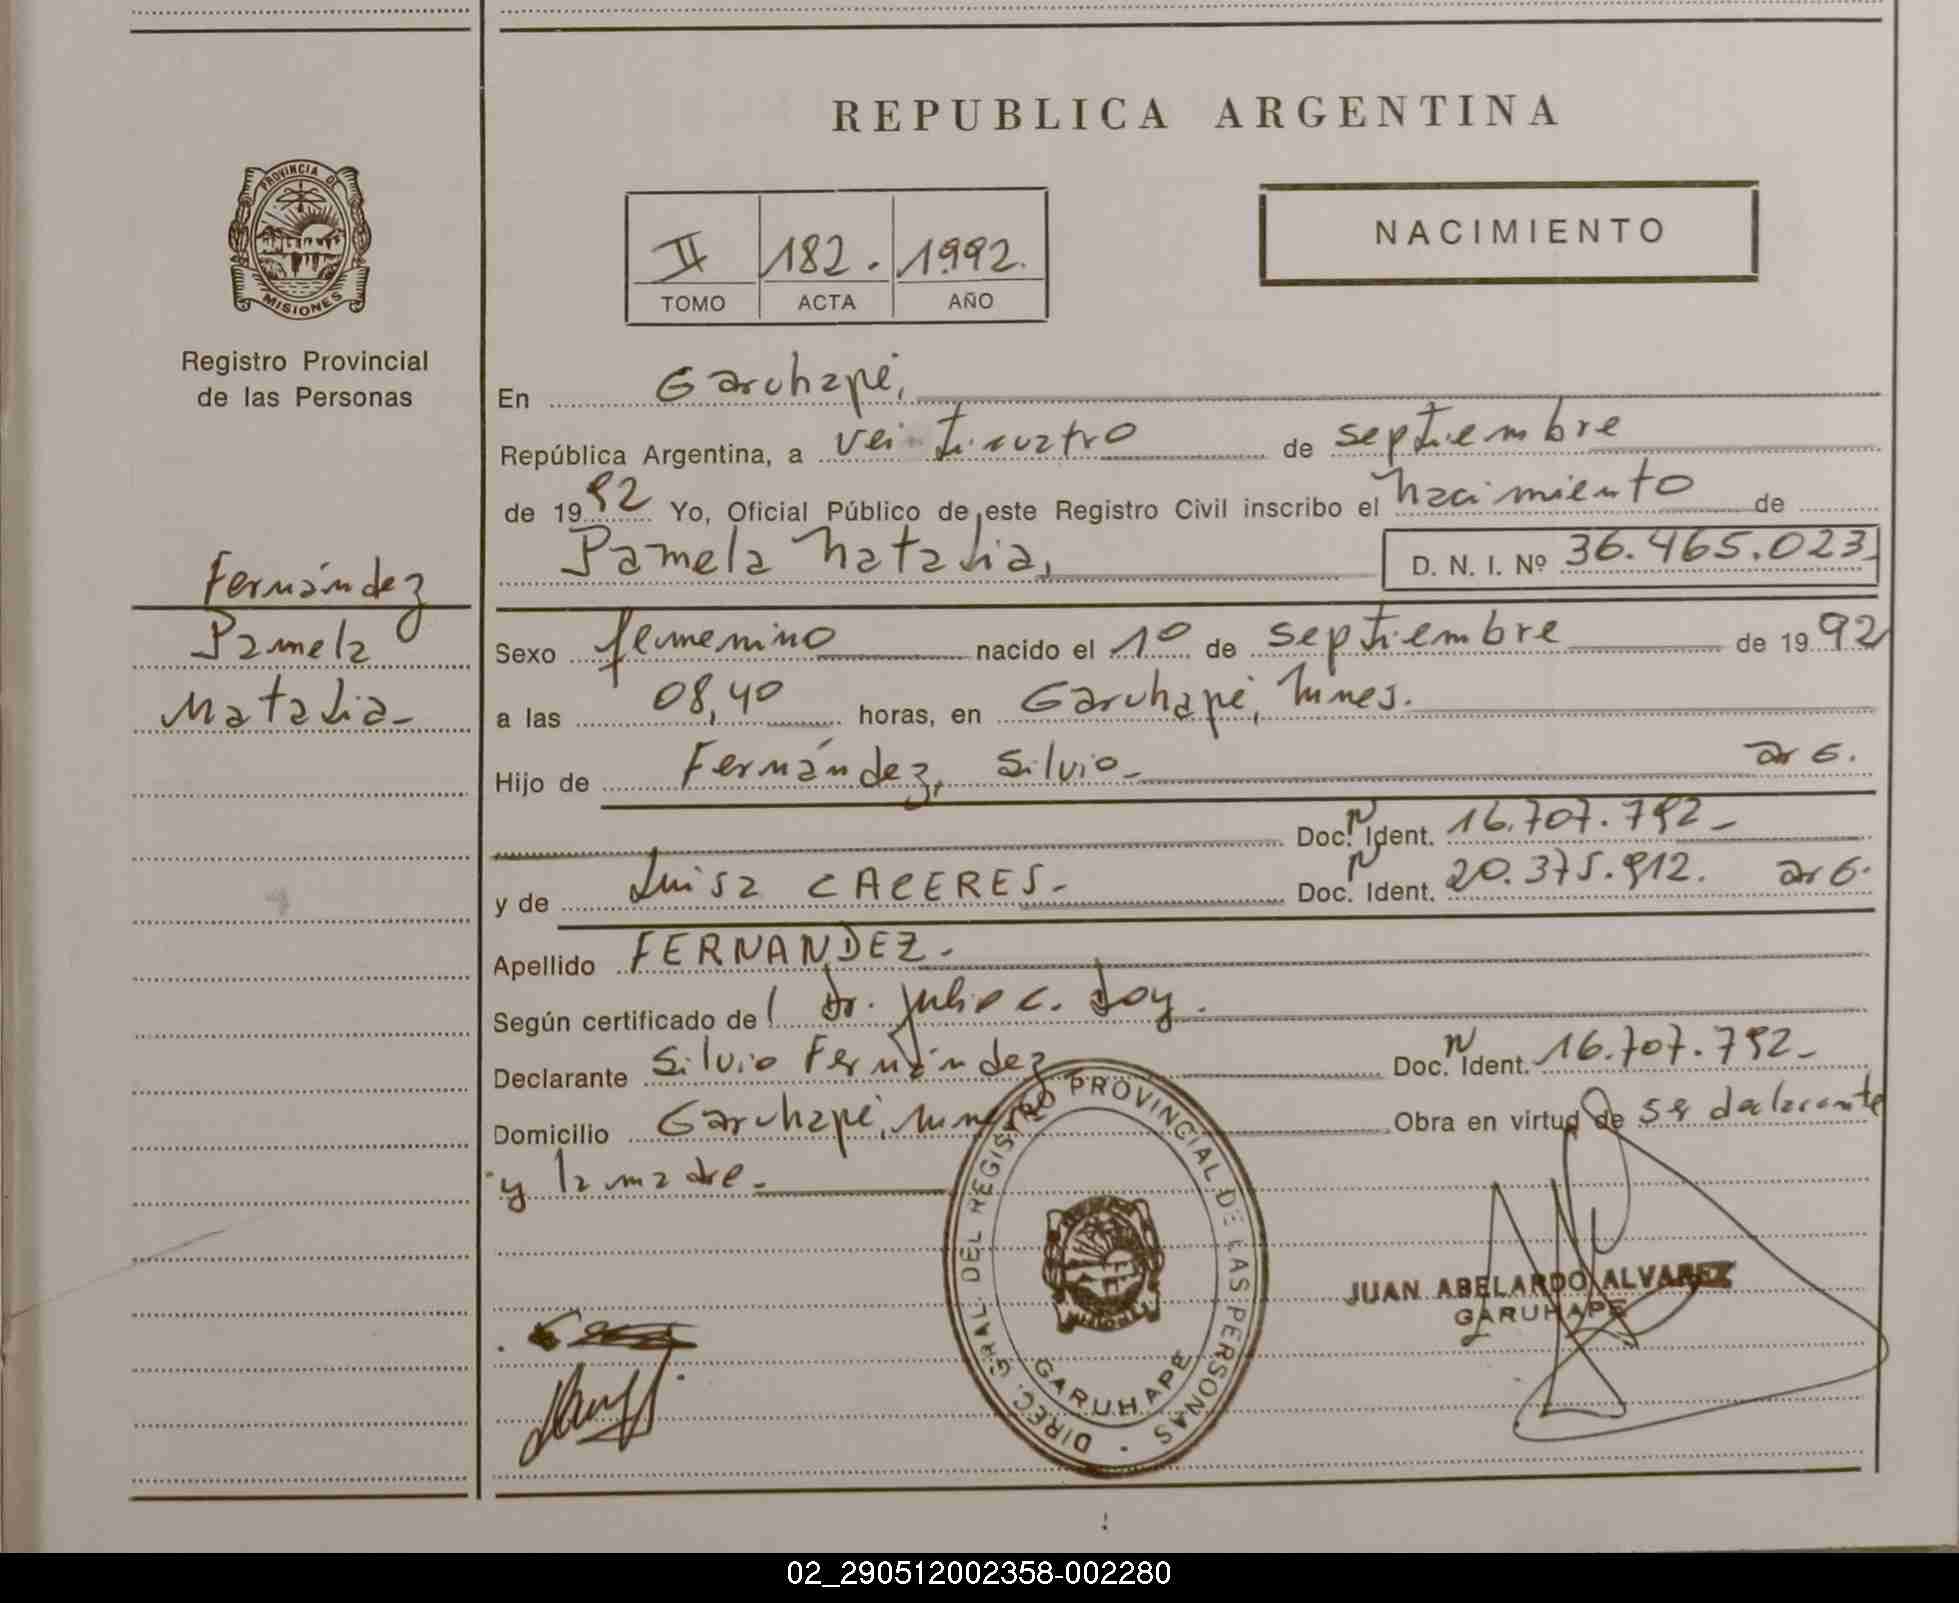 REPUBLICA ARGENTINA
PROVINCIA DE
MISIONES
Registro Provincial
de las Personas
NACIMIENTO
II 182. 1992.
TOMO ACTA AÑO
En Garuhapé,
República Argentina, a vei ticuatro de septiembre
de 1992 Yo, Oficial Público de este Registro Civil inscribo el nacimiento de
Pamela Natalia, D. N. I. Nº 36.465.023
Fernández
Pamela
Natalia-
Sexo femenino nacido el 1º de septiembre de 1992
a las 08,40 horas, en Garuhapé, Mnes.
Hijo de Fernández, Silvio- arG.
Doc. N Ident. 16.707.792-
y de Luisa CACERES- Doc. N Ident. 20.375.912. arG.
Apellido FERNANDEZ-
Según certificado de l Dr. Julio C. Doy.
Declarante Silvio Fernández Doc. N Ident. 16.707.792-
Domicilio Garuhapé, Mnes Obra en virtud de ser declarante
y la madre-
DIREC. GRAL. DEL REGISTRO PROVINCIAL DE LAS PERSONAS
GARUHAPE
JUAN ABELARDO ALVAREZ
GARUHAPE
02_290512002358-002280